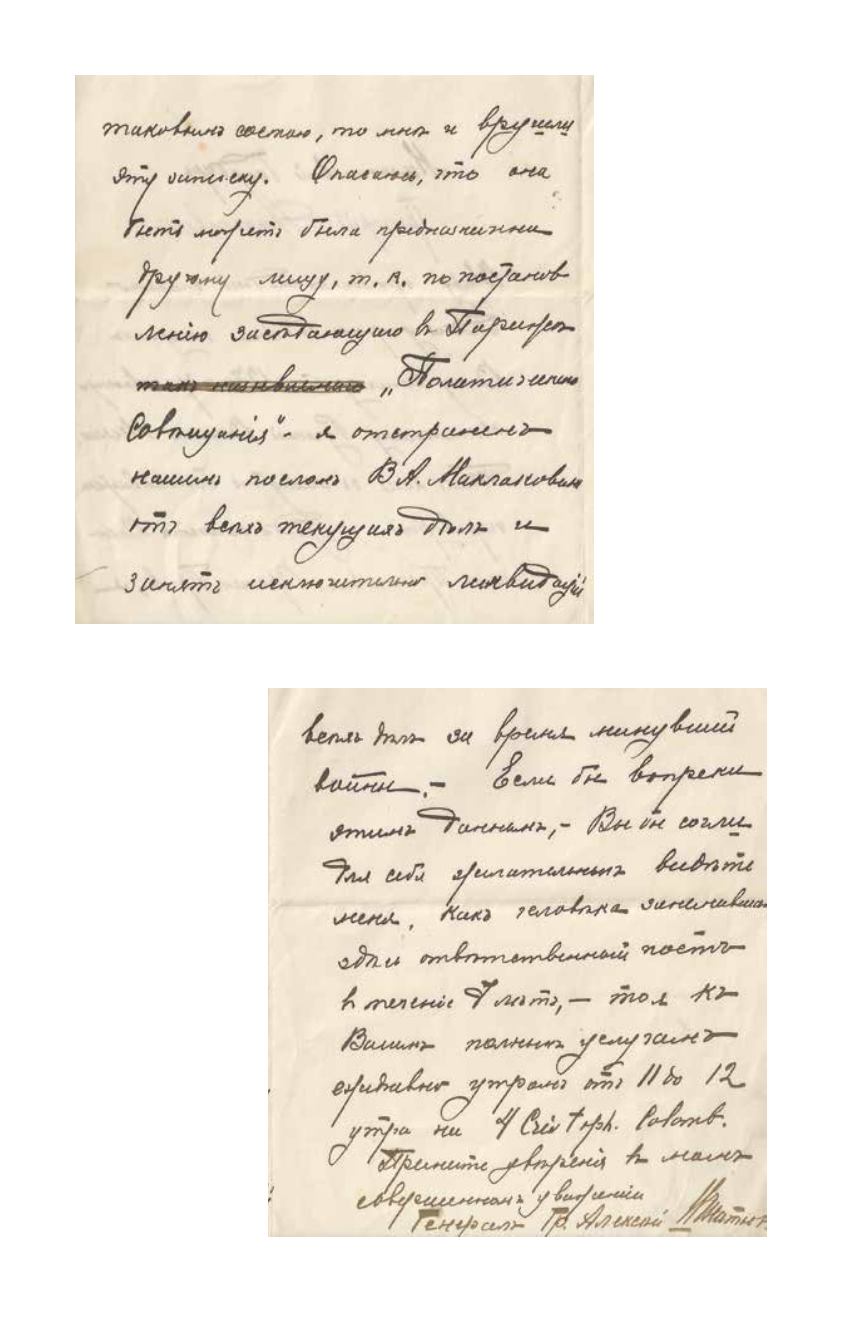 таковымъ состою, то мнѣ и вручили
эту записку. Опасаюсь, что она
быть можетъ была предназначена
другому лицу, т. к. по постанов
ленію засѣдающаго въ Парижѣ
такъ называемаго „Политическаго
Совѣщанія“ - я отстраненъ
нашимъ посломъ В.А. Маклаковымъ
отъ всѣхъ текущихъ дѣлъ и
занятъ исключительно ликвидаціей
всѣхъ дѣлъ за время минувшей
войны. - Если бы вопреки
этимъ даннымъ, - Вы бы сочли
для себя желательнымъ видѣть
меня, какъ человѣка занимавшаго
здѣсь отвѣтственный постъ
въ теченіе 7 лѣтъ, - то я къ
Вашимъ полнымъ услугамъ
ежедневно утромъ отъ 11 до 12
утра на 4 Christoph. Colomb.
Примите увѣренія въ моемъ
совершенномъ уваженіи
Генералъ Гр. Алексѣй Игнатьевъ